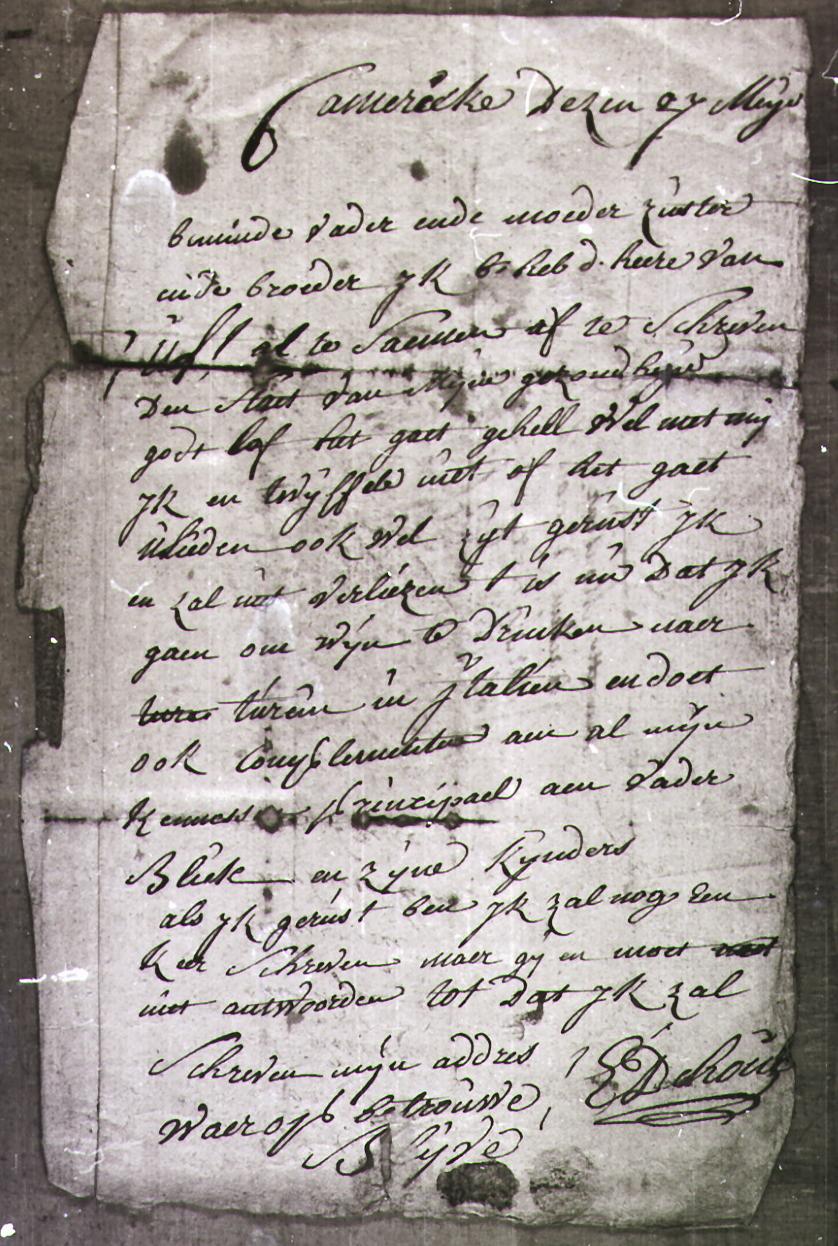 Camericke Dezen 27 Meye
beminde vader ende moeder zuster
ende broeder yk heb d'heere van
al te Saemen af te Schreven
Den Staet van Myne gezondhyd
godt lof het gaet gehell wel met mij
yk en twyffele niet of het gaet
ulieden ook wel zyt gerust yk
en zal niet verliezen t is nu Dat yk
gaen om wyn te Drinken naer
turin in ytalien en doet
ook Complementen aen al mijn
kenness principael aen vader
Bliek en zyne kynders
als yk gerust ben yk zal nog Een
keer Schreven maer gy en moet
niet antwoorden tot Dat yk zal
Schreven mijn addres
waer op betrouwe
Blyve